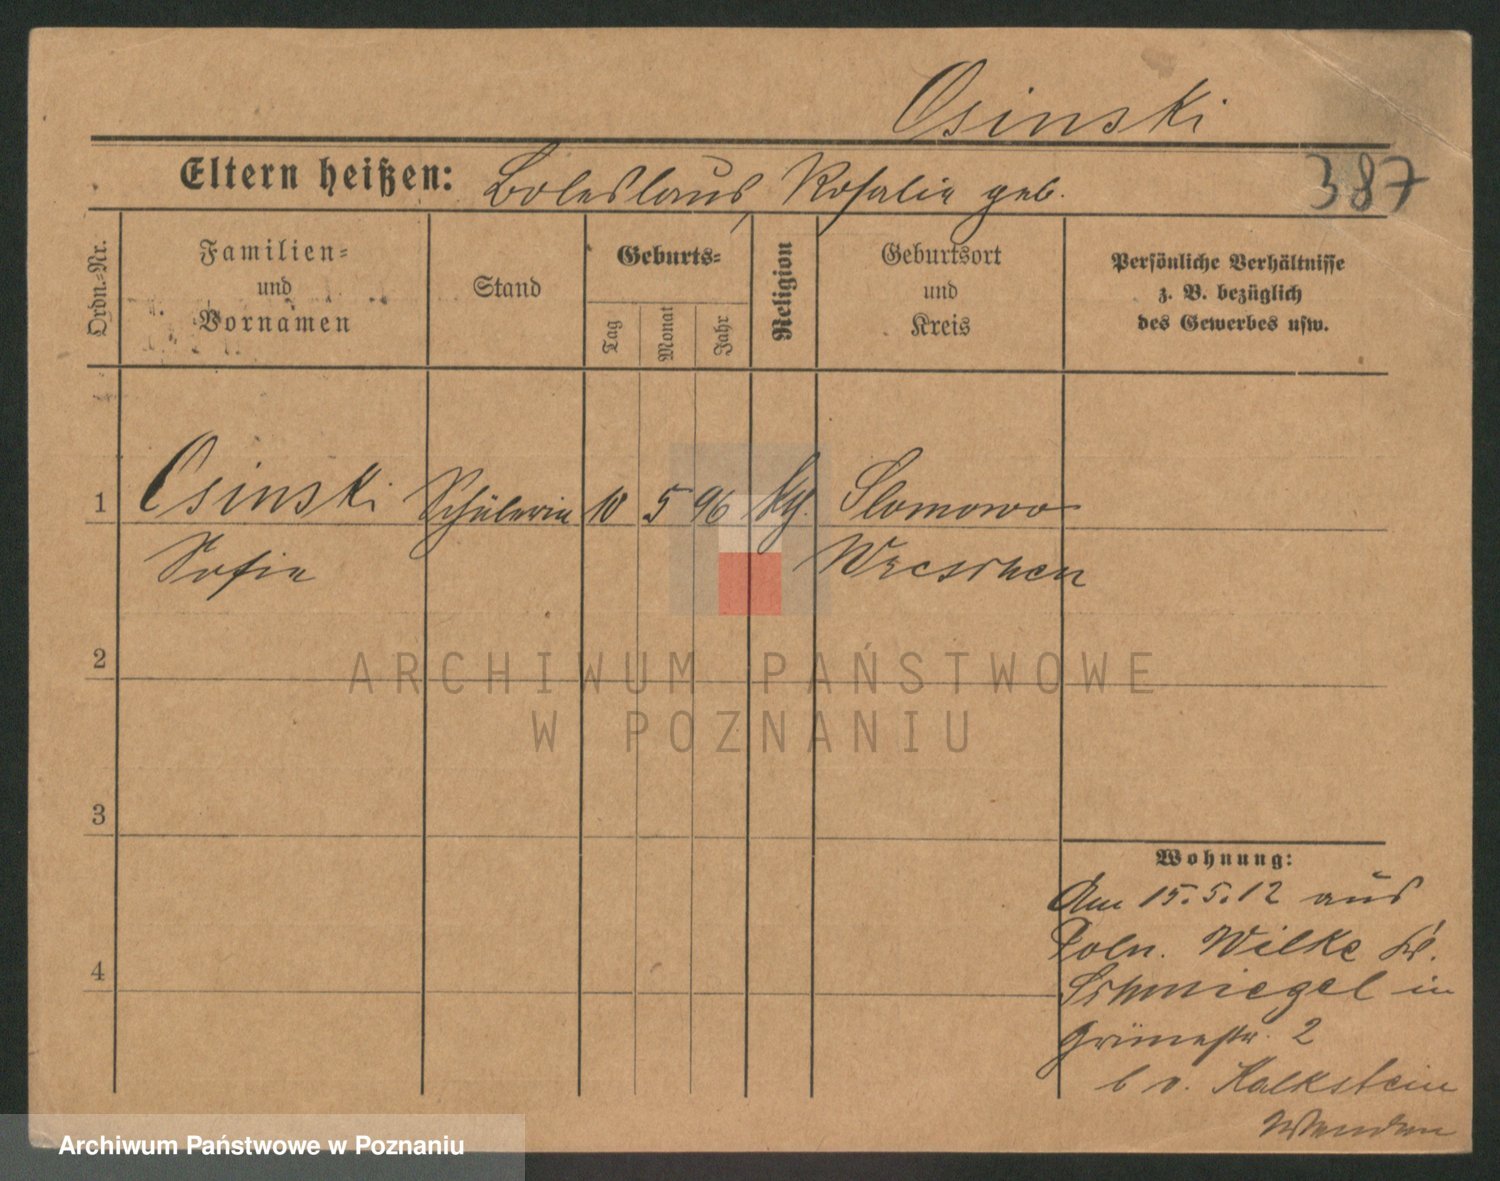 Osinski
387
Eltern heißen: Boleslaus, Rosalie geb.
Ordn.-Nr.
Familien-
und
Vornamen
Stand
Geburts-
Tag
Monat
Jahr
Religion
Geburtsort
und
Kreis
Persönliche Verhältnisse
z. B. bezüglich
des Gewerbes usw.
1 Osinski Schülerin 10 5 96 kth. Slomowo
Sofie Wreschen
2
3
4
Wohnung:
Am 15.5.12 aus
Poln. Wilke Kr.
Schmiegel in
Grünestr. 2
b v. Kalkstein
ARCHIWUM PAŃSTWOWE
W POZNANIU
Archiwum Państwowe w Poznaniu